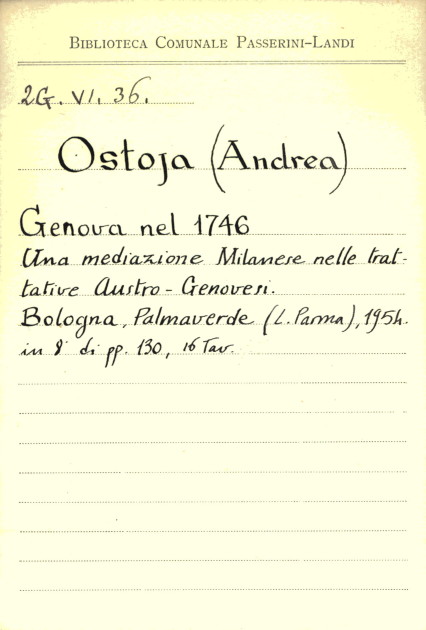 BIBLIOTECA COMUNALE PASSERINI-LANDI
2G. VI. 36.
Ostoja (Andrea)
Genova nel 1746
Una mediazione Milanese nelle trat-
tative Austro-Genovesi.
Bologna, Palmaverde (L. Parma), 1954.
in 8° di pp. 130, 16 Tav.